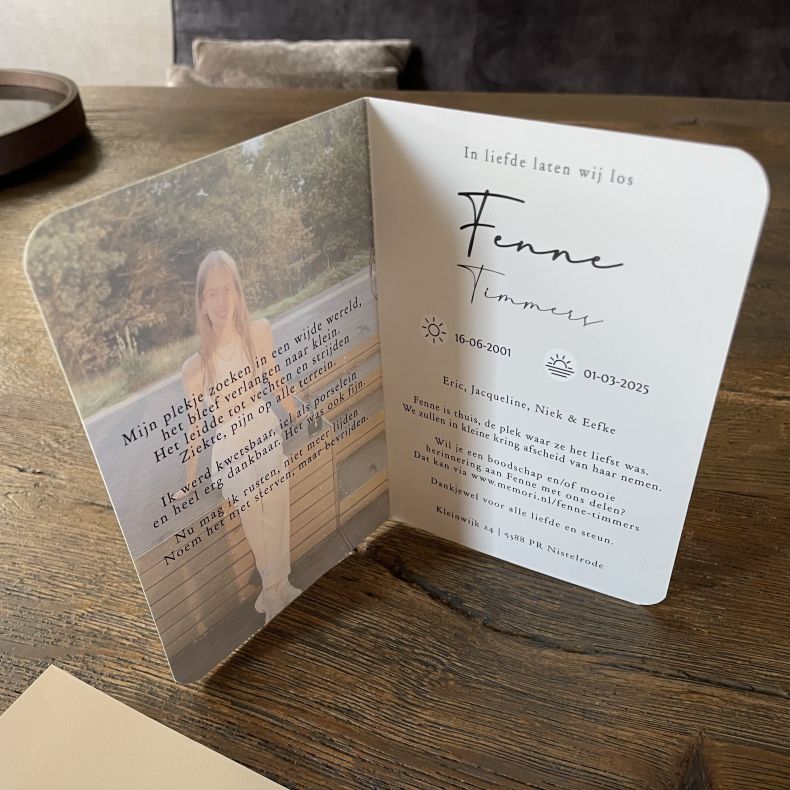 Mijn plekje zoeken in een wijde wereld,
het bleef verlangen naar klein.
Het leidde tot vechten en strijden
Ziekte, pijn op alle terrein.
Ik werd kwetsbaar, iel als porselein
en heel erg dankbaar. Het was ook fijn.
Nu mag ik rusten, niet meer lijden
Noem het niet sterven, maar bevrijden.
In liefde laten wij los
Fenne
Timmers
16-06-2001
01-03-2025
Eric, Jacqueline, Niek & Eefke
Fenne is thuis, de plek waar ze het liefst was.
We zullen in kleine kring afscheid van haar nemen.
Wil je een boodschap en/of mooie
herinnering aan Fenne met ons delen?
Dat kan via www.memori.nl/fenne-timmers
Dankjewel voor alle liefde en steun.
Kleinwijk 24 | 5388 PR Nistelrode